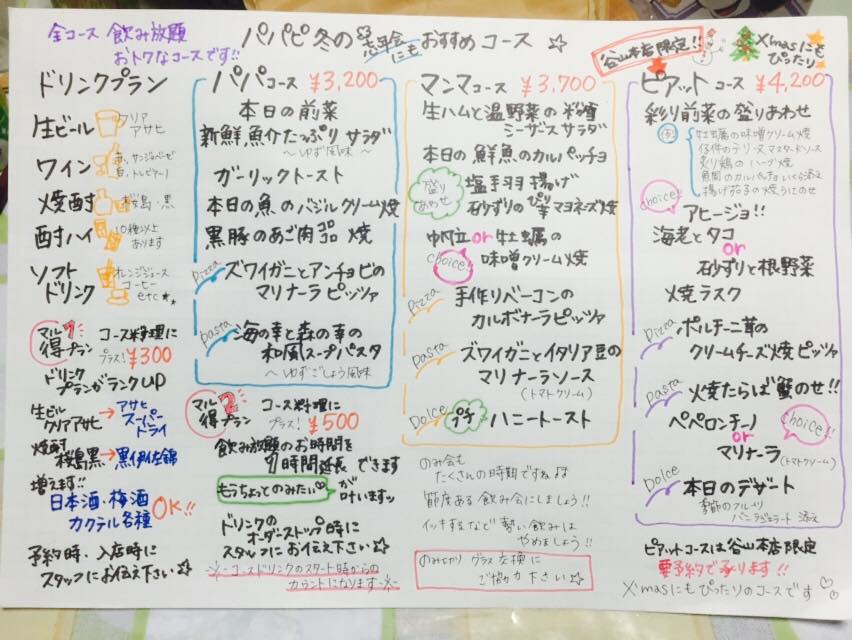 全コース 飲み放題
おトクなコースです!!
パパピ冬の忘年会にもおすすめコース☆
谷山本店限定!!
X'masにも
ぴったり
ドリンクプラン
生ビール
クリア
アサヒ
ワイン
赤、サンジョベーゼ
白、トレビアーノ
焼酎
桜島・黒
酎ハイ
10種以上
あります
ソフト
ドリンク
オレンジジュース
コーヒー
etc★
マル得プラン1
コース料理に
プラス!¥300
ドリンク
プランがランクUP
生ビール
クリアアサヒ→アサヒ
スーパー
ドライ
焼酎
桜島黒→黒伊佐錦
増えます!!
日本酒・梅酒
カクテル各種 OK!!
予約時、入店時に
スタッフにお伝え下さい☆
パパコース ¥3,200
本日の前菜
新鮮魚介たっぷりサラダ
〜ゆず風味〜
ガーリックトースト
本日の魚のバジルクリーム焼
黒豚のあご肉 焼
pizza
ズワイガニとアンチョビの
マリナーラピッツァ
pasta
海の幸と森の幸の
和風スープパスタ
〜ゆずごしょう風味
マル得プラン2
コース料理に
プラス!¥500
飲み放題のお時間を
1時間延長できます
もうちょっとのみたい♡が
叶いますッ
ドリンクの
オーダーストップ時に
スタッフにお伝え下さい☆
-※-コースドリンクのスタート時からの
カウントになります-※-
マンマコース ¥3,700
生ハムと温野菜の
シーザースサラダ
本日の鮮魚のカルパッチョ
盛り
あわせ
塩手羽揚げ
砂ずりのピリ辛マヨネーズ焼
帆立or牡蠣の
味噌クリーム焼
choice!
Pizza
手作りベーコンの
カルボナーラピッツァ
Pasta
ズワイガニとイタリア豆の
マリナーラソース
(トマトクリーム)
Dolce
プチ ハニートースト
のみ会も
たくさんの時期ですね♪♪
節度ある飲み会にしましょう!!
イッキするなど勢い飲みは
やめましょう!!
のみきり グラス交換に
ご協力下さい☆
ピアットコース ¥4,200
彩り前菜の盛りあわせ
例
牡蠣の味噌クリーム焼
仔件のテリーヌマスタードソース
炙り鶏のハーブ焼
魚間のカルパッチョいくら添え
揚げ茄子の焼うにのせ
choice!
アヒージョ!!
海老とタコ
or
砂ずりと根野菜
焼ラスク
Pizza
ポルチーニ茸の
クリームチーズ焼ピッツァ
pasta
焼たらば蟹のせ!!
ペペロンチーノ
or
マリナーラ
(トマトクリーム)
choice!!
Dolce
本日のデザート
季節のフルーツ
バニラジェラート 添え
ピアットコースは谷山本店限定
要予約で承ります!!
X'masにもぴったりのコースです♡♡